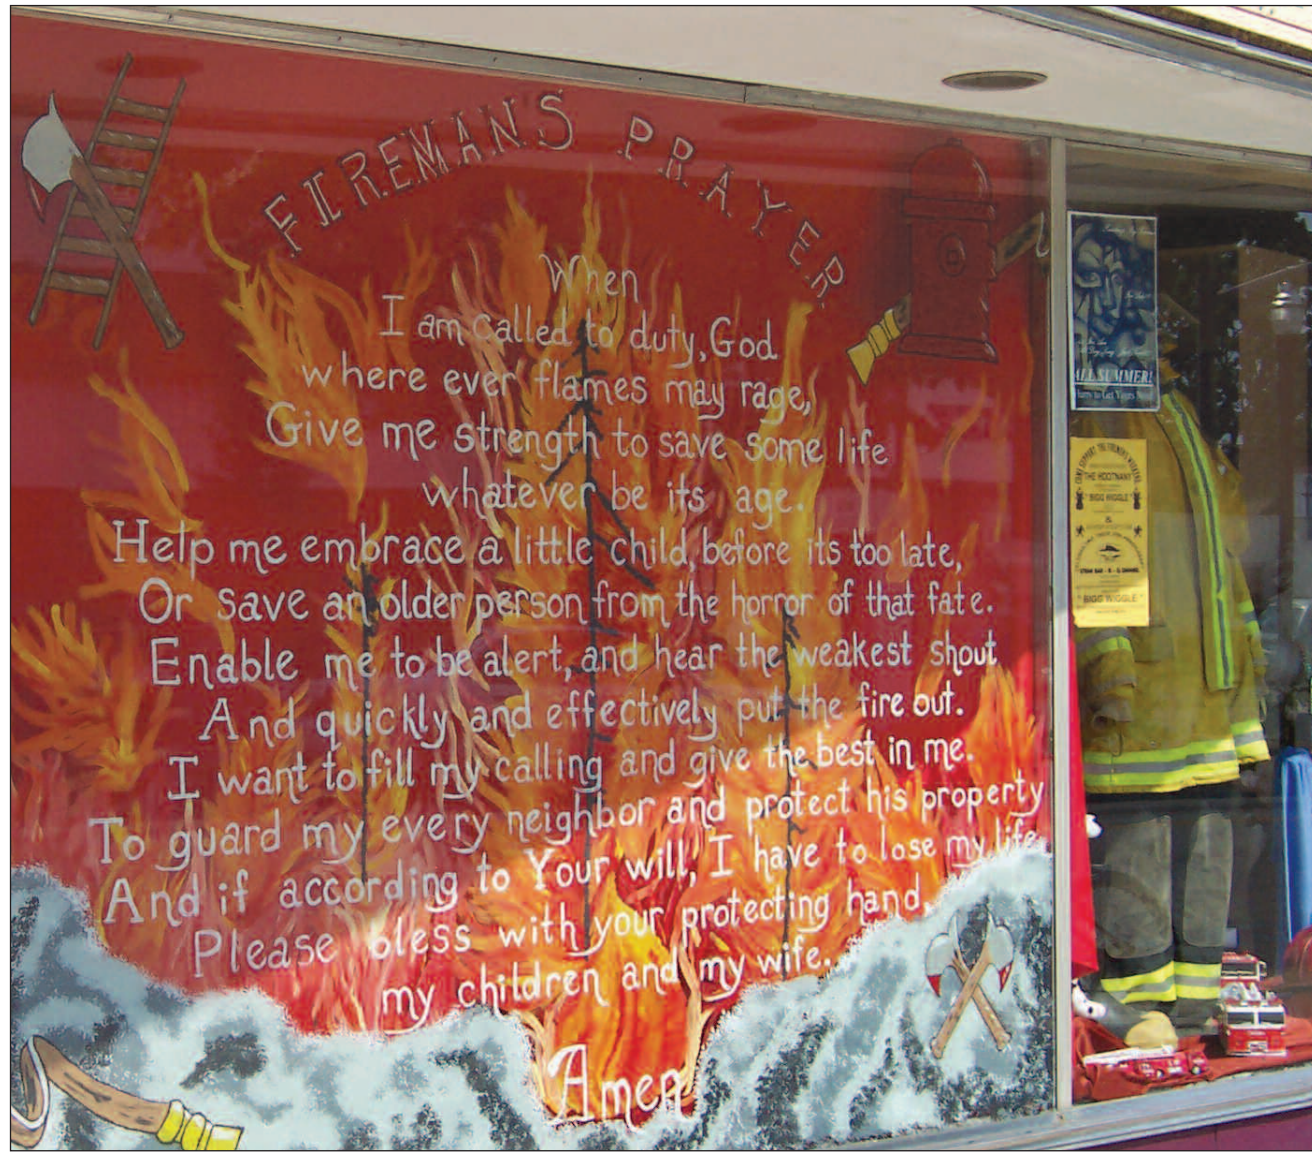 FIREMANS PRAYER
When
I am called to duty, God
where ever flames may rage,
Give me strength to save some life
whatever be its age.
Help me embrace a little child before its too late,
Or save an older person from the horror of that fate.
Enable me to be alert, and hear the weakest shout
And quickly and effectively put the fire out.
I want to fill my calling and give the best in me.
To guard my every neighbor and protect his property
And if according to Your will, I have to lose my life
Please bless with your protecting hand,
my children and my wife.
Amen
ALL SUMMER!
THE HOOTNANY
"BIGG WIGGLE"
&
"BIGG WIGGLE"